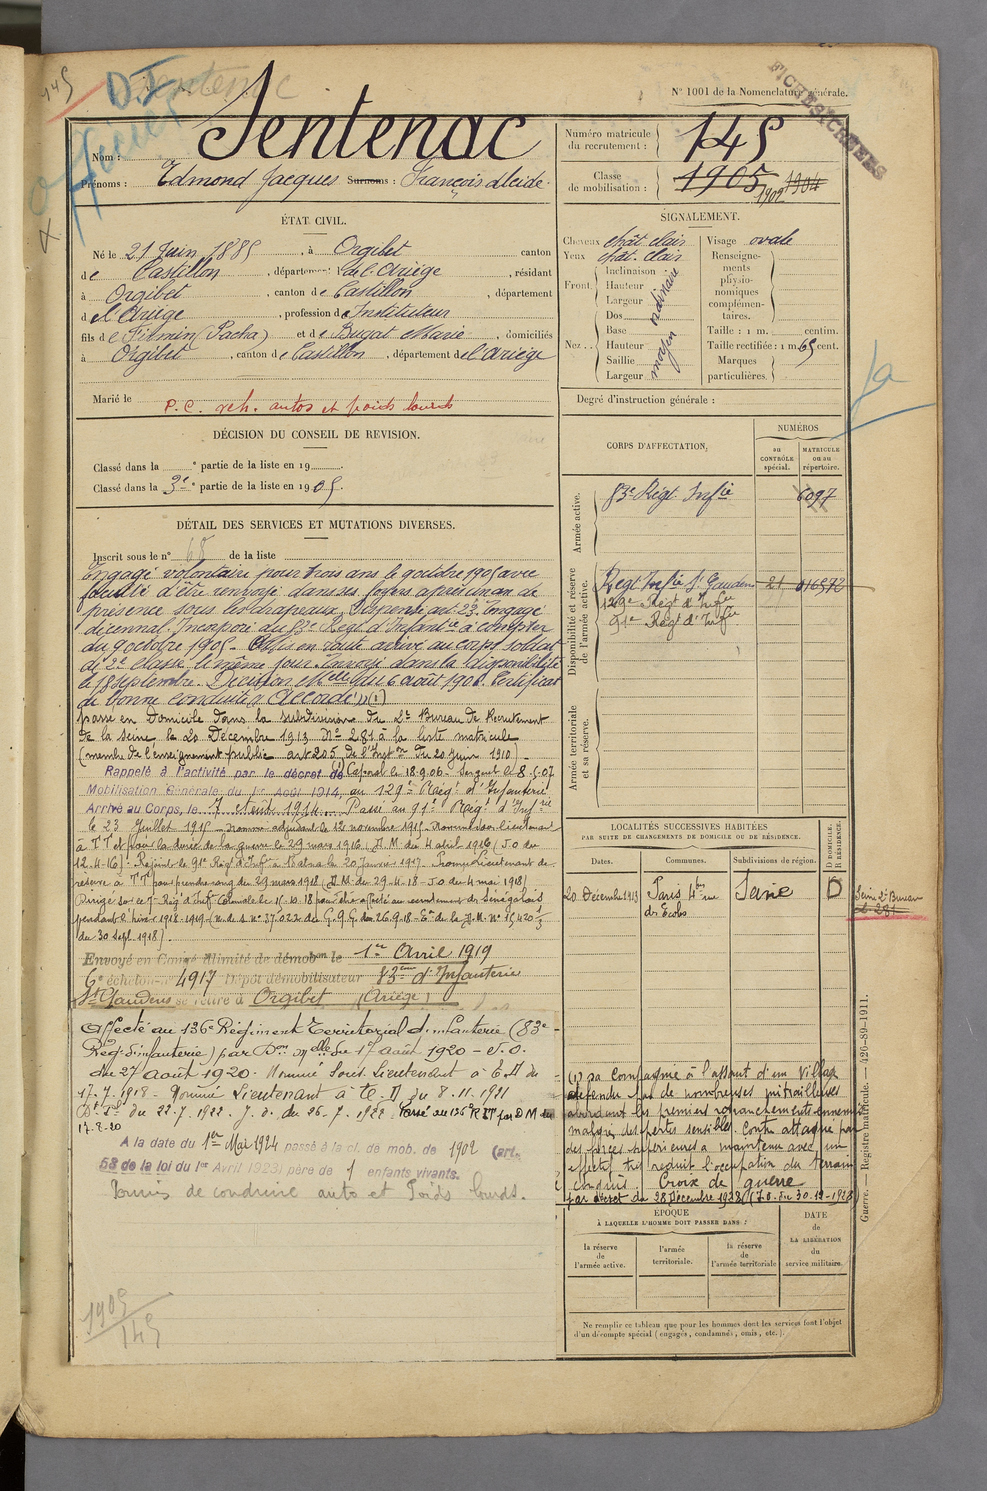 145
D.T
Sentenac
Officier
N° 1001 de la Nomenclature générale.
FICHES ICHEES
Nom : Sentenac
Prénoms : Edmond Jacques Surnoms : François Alcide
Numéro matricule du recrutement : 145
Classe de mobilisation : 1905 1902 1904
ÉTAT CIVIL.
Né le 21 Juin 1885, à Orgibet canton
de Castillon, département de l'Ariège, résidant
à Orgibet, canton de Castillon, département
d el'Ariège, profession de Instituteur
fils de Firmin (Pacha) et de Bugat Marie, domiciliés
à Orgibet, canton de Castillon, département de l'Ariège
Marié le
P.C. veh. autos et poids lourds
SIGNALEMENT.
Cheveux chât. clair
Yeux chât. clair
Front. Inclinaison
Hauteur
Largeur
ordinaire
Nez . . Dos
Base
Hauteur
Saillie
Largeur
moyen
Visage ovale
Renseignements physionomiques complémentaires.
Taille : 1 m. centim.
Taille rectifiée : 1 m. 65 cent.
Marques particulières.
Degré d'instruction générale :
1a
DÉCISION DU CONSEIL DE REVISION.
Classé dans la e partie de la liste en 19 .
Classé dans la 3e partie de la liste en 1905.
DÉTAIL DES SERVICES ET MUTATIONS DIVERSES.
Inscrit sous le n° 68 de la liste
Engagé volontaire pour trois ans le 9 octobre 1905 avec
faculté d'être renvoyé dans ses foyers après un an de
présence sous les drapeaux, Dispensé art. 23. engagé
décennal. Incorporé au 83e Regt d'Infantie à compter
du 9 octobre 1905. Mis en route arrivé au corps soldat
de 2e classe le même jour. Envoyé dans la disponibilité
le 18 Septembre. Décision Mlle du 6 août 1906. Certificat
de bonne conduite "Accordé" (1)
passé en Domicile dans la subdivision du 2e Bureau de Recrutement
de la Seine le 20 Décembre 1913 No 281 à la liste matricule
(membre de l'enseignement public art 205 de l'Instron du 20 juin 1910)
Rappelé à l'activité par le décret de Caporal le 18.9.06. Sergent le 8.5.07
Mobilisation Générale du 1er Août 1914, au 129e Régt d'Infanterie
Arrivé au Corps, le 7 Août 1914. Passé au 91e Régt d'Infrie
le 23 Juillet 1915. Nommé adjudant le 12 novembre 1915. Nommé sous lieutenant
à TT et pour la durée de la guerre le 29 mars 1916 (D.M. du 4 avril 1916 (J.O du
12-4-16). Rejoint le 91e Régt d'Infie le 20 Janvier 1917. Promu Lieutenant de
réserve à TT pour prendre rang du 29 mars 1918 (D.M. du 29-4-18 - J.O du 4 mai 1918)
Dirigé sur ce 7e Régt d'Inf. Coloniale le 15-10-18 pour être affecté au recrutement de Sénégalais
pendant l'hiver 1918-1919 (n. de s. n° 37.022 du G.Q.G. du 26.9.18
du 30 Sept. 1918).
Envoyé en Congé illimité de démobon le 1er Avril 1919
6e échelon n° 4917 Dépôt démobilisateur 83eme d'Infanterie
St Gaudens se retire à Orgibet (Ariège)
Affecté au 136e Régiment Territorial d'infanterie (83e
Rég. d'infanterie) par Don Mlle du 17 août 1920 - J.O.
du 27 août 1920. Nommé Sous Lieutenant à T.D du
17.7.1918. Nommé Lieutenant à T.D du 8.11.1921
Dt Pal du 22.7.1922. J.O. du 26.7.1922. Passé au 136e RIT par D M du
17-8-20
A la date du 1er Mai 1924 passé à la cl. de mob. de 1902 (art.
58 de la loi du 1er Avril 1923) père de 1 enfants vivants.
Permis de conduire auto et Poids lourds.
1905
145
CORPS D'AFFECTATION.
NUMÉROS
au CONTRÔLE spécial.
MATRICULE ou au répertoire.
Armée active.
83e Régt Infie 6097
Disponibilité et réserve de l'armée active.
Regt Infie St Gaudens 21 016573
129e Régt d'Infie
91e Régt d'Infie
Armée territoriale et sa réserve.
LOCALITÉS SUCCESSIVES HABITÉES
PAR SUITE DE CHANGEMENTS DE DOMICILE OU DE RÉSIDENCE.
Dates. Communes. Subdivisions de région. D DOMICILE. R RÉSIDENCE.
20 Décembre 1913 Paris 4 bis rue des Ecoles Seine D
Seine 2e Bureau
n. 281
(1) sa compagnie à l'assaut d'un village
défendu par de nombreuses mitrailleuses
abordant les premiers retranchements ennemis
malgré des pertes sensibles. Contre attaqué par
des forces supérieures a maintenu avec un
effectif très réduit l'occupation du terrain
conquis. Croix de guerre
par décret du 28 Décembre 1928 (J.O. du 30-12-1928)
ÉPOQUE
À LAQUELLE L'HOMME DOIT PASSER DANS :
la réserve de l'armée active.
l'armée territoriale.
la réserve de l'armée territoriale
DATE de LA LIBÉRATION du service militaire.
Ne remplir ce tableau que pour les hommes dont les services font l'objet
d'un décompte spécial (engagés, condamnés, omis, etc.).
Guerre. — Registre matricule. — 426-89-1911.